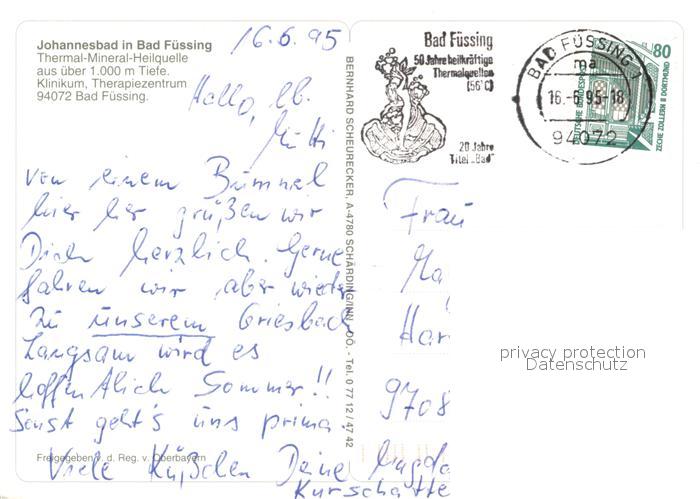 Johannesbad in Bad Füssing
Thermal-Mineral-Heilquelle
aus über 1.000 m Tiefe.
Klinikum, Therapiezentrum
94072 Bad Füssing.
16.6.95
Hallo, lb.
Mutti
von einem Bummel
hier her grüßen wir
Dich herzlich. Gerne
fahren wir aber wieder
zu unserem Griesbach
Langsam wird es
hoffentlich Sommer!!
Sonst geht's uns prima
Viele Küßchen Deine Magda
Kurschatte
Freigegeben v. d. Reg. v. Oberbayern
BERNHARD SCHEURECKER, A-4780 SCHÄRDING/INN, OÖ. - Tel. 0 77 12 / 47 42
Bad Füssing
50 Jahre heilkräftige
Thermalquellen
(56°C)
20 Jahre
Titel „Bad"
BAD FÜSSING 1
ma
16.-6.95-18
94072
80
DEUTSCHE BUNDESPOST
ZECHE ZOLLERN II DORTMUND
Frau
Ma
Har
9708
privacy protection
Datenschutz